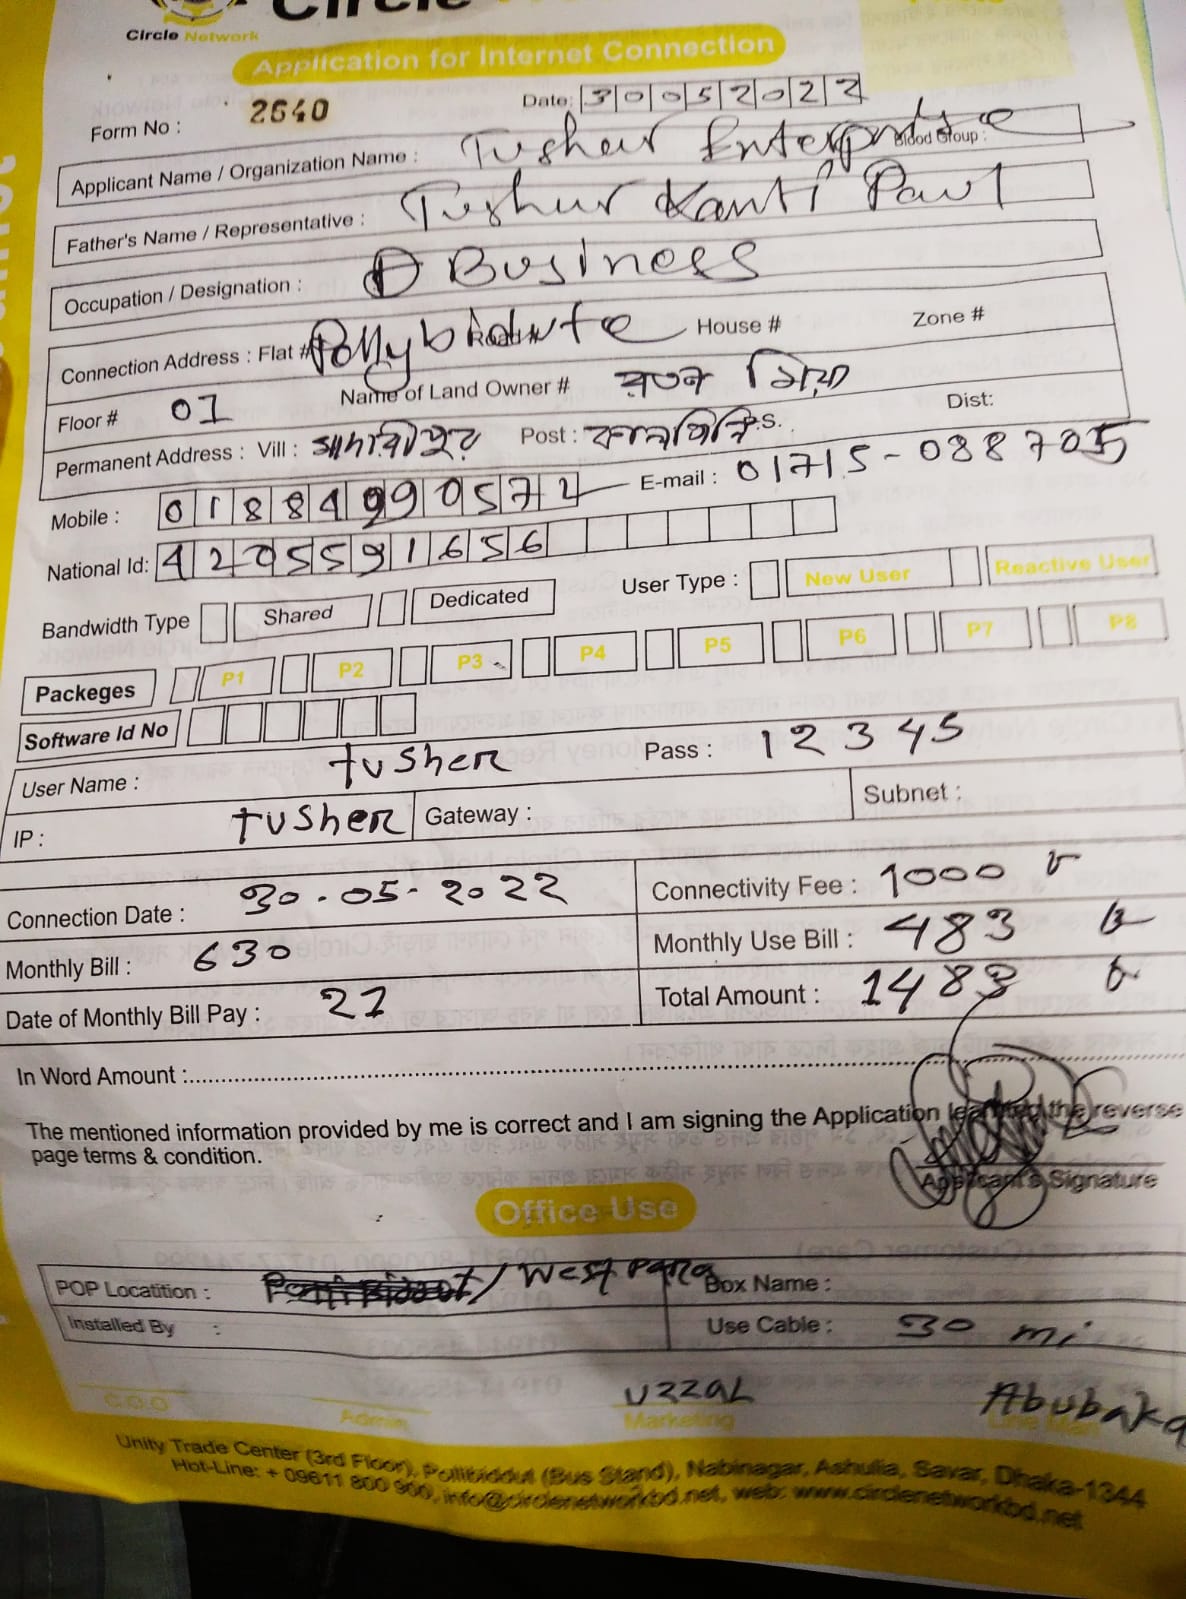 Circle
Circle Network
Application for Internet Connection
Form No : 2640
Date: 30052022
Applicant Name / Organization Name : Tushar Enterprise Blood Group :
Father's Name / Representative : Tushur Kanti Paul
Occupation / Designation : Business
Connection Address : Flat # Pollybidute House # Zone #
Floor # 01 Name of Land Owner # রতন মিয়া
Permanent Address : Vill : Post : P.S. Dist:
Mobile : E-mail : 01715-0887085
National Id: 4205591656
Bandwidth Type Shared Dedicated User Type : New User Reactive User
Packeges P1 P2 P3 P4 P5 P6 P7 P8
Software Id No
User Name : tusher Pass : 12345
IP : tusher Gateway : Subnet :
Connection Date : 30.05.2022 Connectivity Fee : 1000
Monthly Bill : 630 Monthly Use Bill : 483
Date of Monthly Bill Pay : 21 Total Amount : 1483
In Word Amount :
The mentioned information provided by me is correct and I am signing the Application the reverse
page terms & condition.
Applicant's Signature
Office Use
POP Locatition : / West para Box Name :
Installed By : Use Cable : 30 mi
UZZAL Abubaka
C.O.O Admin Marketing Line Man
Unity Trade Center (3rd Floor), Pollibiddut (Bus Stand), Nabinagar, Ashulia, Savar, Dhaka-1344
Hot-Line: + 09611 800 900, info@circlenetworkbd.net, web: www.circlenetworkbd.net